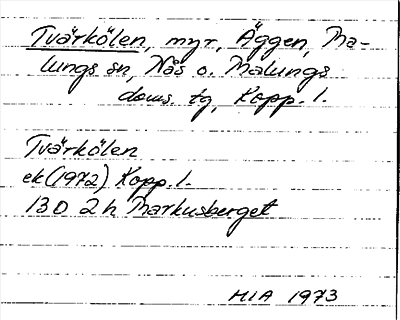 Tvärkölen, myr, Äggen, Ma-
lungs sn, Nås o. Malungs
doms. tg, Kopp. l.
Tvärkölen
ek (1972) Kopp. l.
13 D 2 h Markusberget
MIA 1973